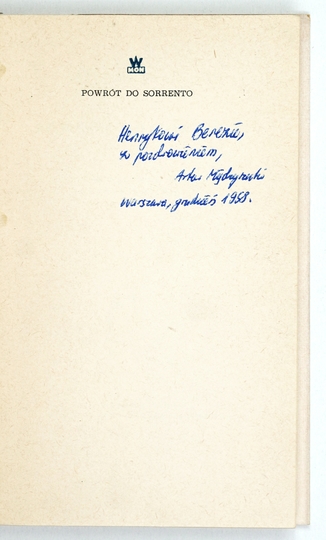 W
MON
POWRÓT DO SORRENTO
Henrykowi Berezie,
z pozdrowieniem,
Artur Międzyrzecki
Warszawa, grudzień 1958.